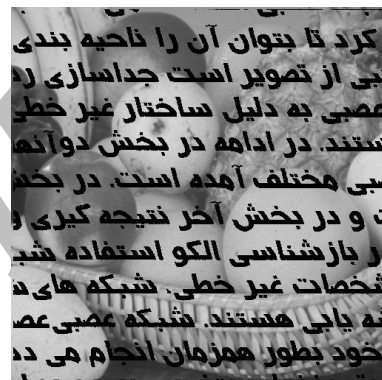 کرد تا بتوان آن را ناحیه بندی
بی از تصویر است جداسازی
عصبی به دلیل ساختار غیر خطی
ستند. در ادامه در بخش
بی مختلف آمده است. در
و در بخش آخر نتیجه گیری و
ر بازشناسی الگو استفاده
شخصات غیر خطی. شبکه های
یابی هستند. شبکه عصبی
خود بطور همزمان انجام می